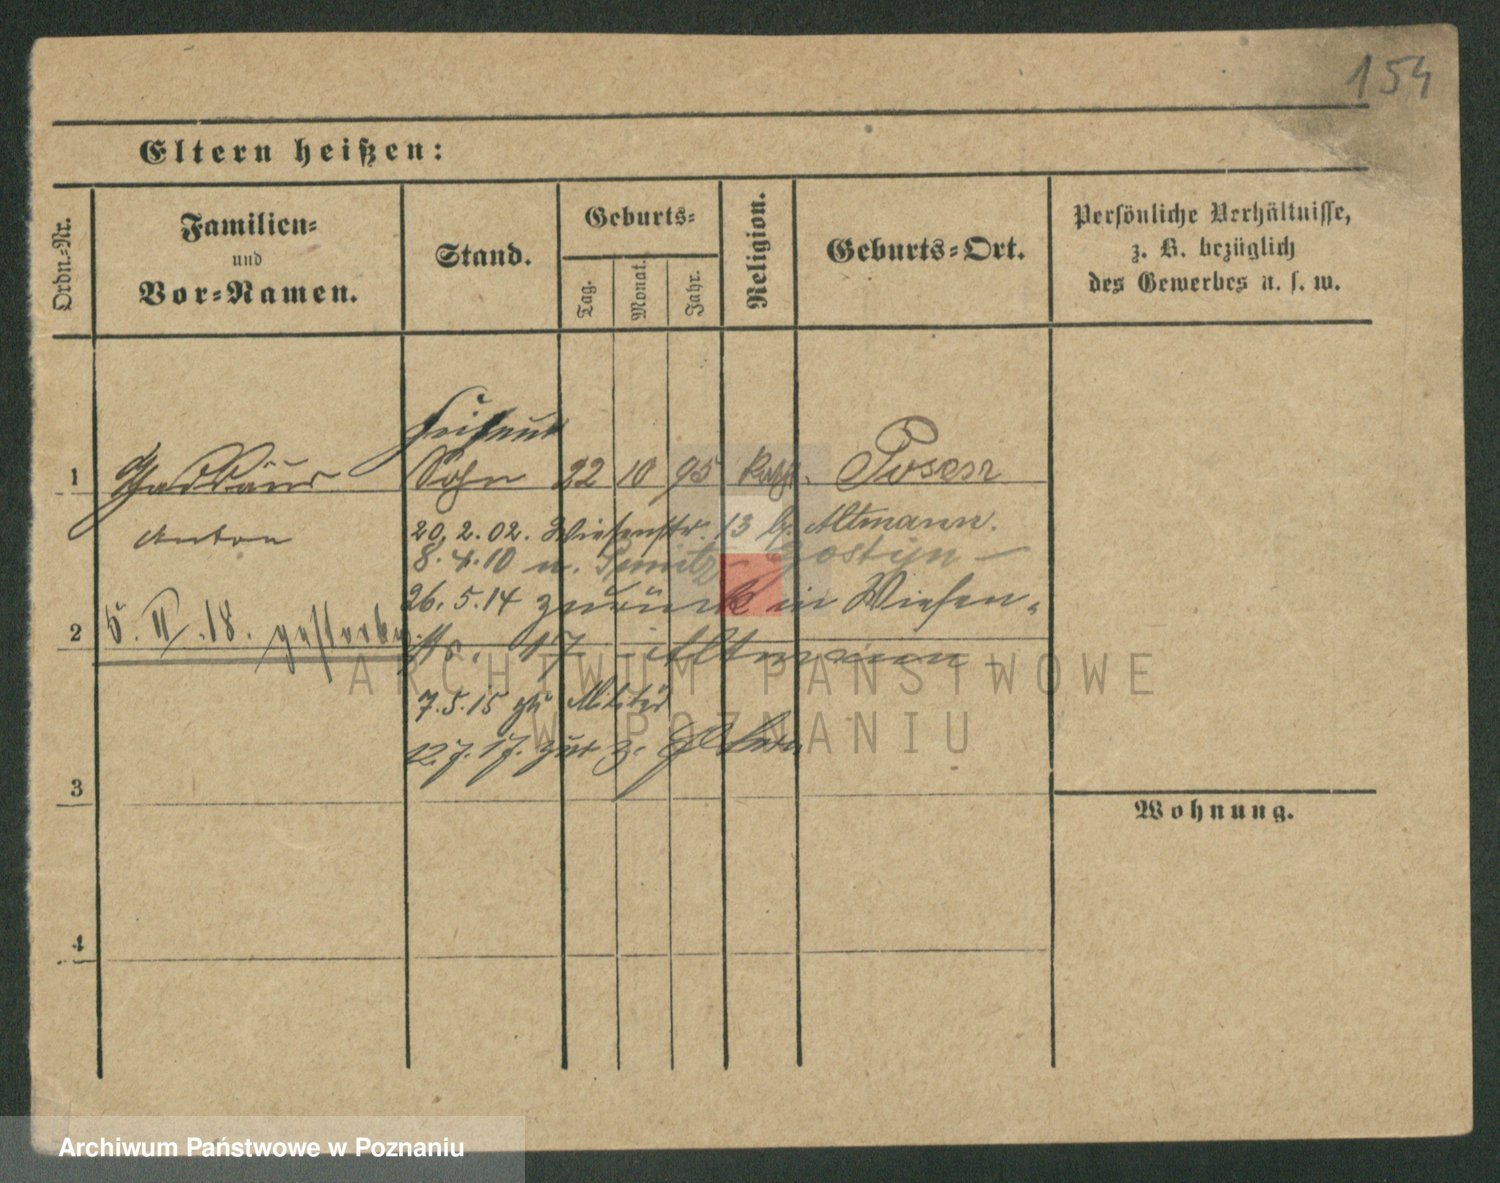 154
Eltern heißen:
Ordn.-Nr.
Familien-
und
Vor-Namen.
Stand.
Geburts-
Tag.
Monat.
Jahr.
Religion.
Geburts-Ort.
Persönliche Verhältnisse,
z. B. bezüglich
des Gewerbes u. s. w.
1
Sohn 22 10 95 Kath. Posen
Anton
20.2.02. Wiesenstr. 13 b. Altmann.
8.4.10 n. Punitz - Gostyn -
26.5.14 zurück in Wiesen-
2 5. II. 18. gestorben
str. 17 Altmann
7.5.15 zu Militär
12.7.17. zur z. Eltern
3
Wohnung.
4
ARCHIWUM PAŃSTWOWE
W POZNANIU
Archiwum Państwowe w Poznaniu